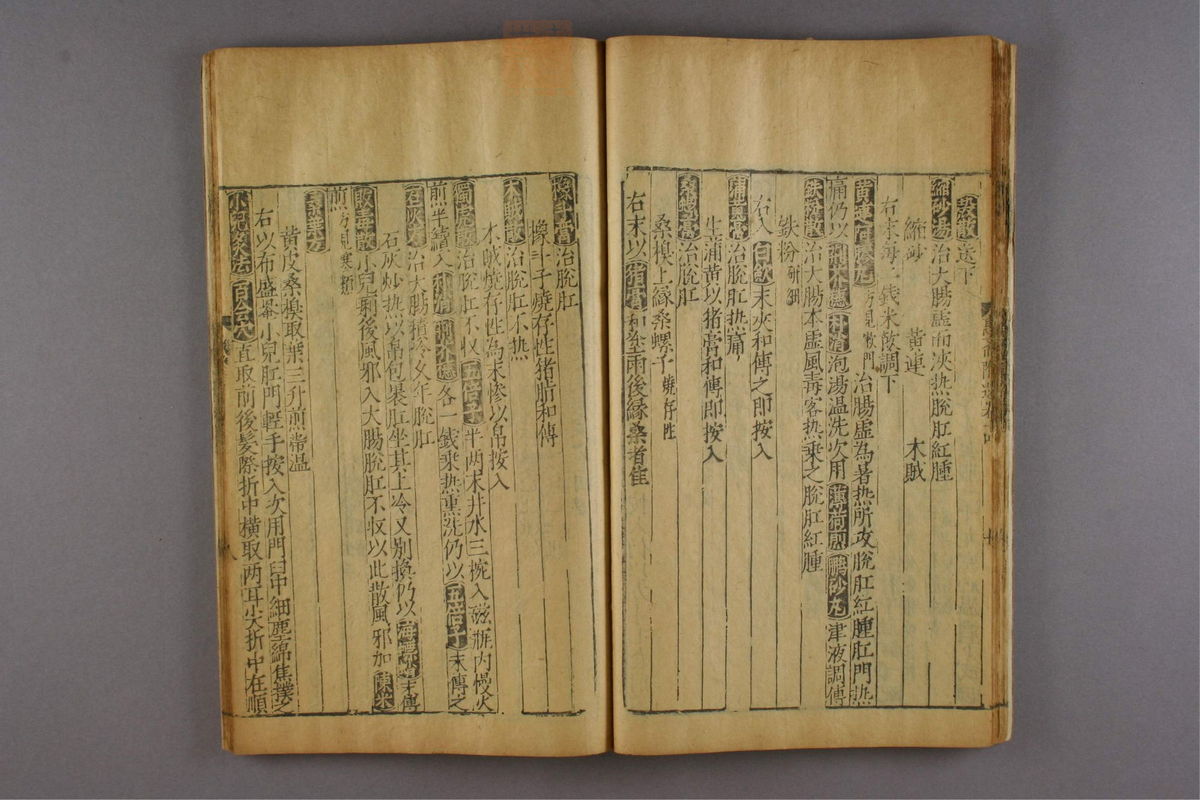 毀散送下
縮砂湯治大腸虛而夾热脫肛紅腫
縮砂 黃連 木賊
右末每一錢米飲調下
黃連阿膠丸方見熱門治腸虛為暑热所攻脫肛紅腫肛門热
痛仍以荆芥穗朴消泡湯温洗次用薄荷煎鵬砂丸津液調傅
鉄粉散治大腸本虛風毒客热乗之脫肛紅腫
鉄粉研細
右入白斂末夾和傅之即按入
蒲黃膏治脫肛热痛
生蒲黃以猪膏和傅即按入
桑螺膏治脫肛
桑樹上緣桑螺子燒存性
右末以猪膏和塗雨後緣桑者佳
橡子膏治脫肛
橡斗子燒存性猪脂和傅
木賊散治脫肛不热
木賊燒存性為末慘以帛按入
獨虎散治脫肛不收五倍子半两末井水三椀入磁瓶内慢火
煎半續入朴消荆芥穗各一錢乗热熏洗仍以五倍子末傅之
石灰散治大腸積冷久年脫肛
石灰炒热以帛包暴肛坐其上冷又別換仍以海螵蛸末傅
敗毒散小兒痢後風邪入大腸脫肛不収以此散風邪加陳米
煎方見寒類
桑葉方
黃皮桑樹取葉三升煎帶温
右以布盛罨小兒肛門輕手按入次用門臼中細塵綿焦撲之
小兒灸法百會穴直取前後髮際折中橫取两耳尖折中在頂